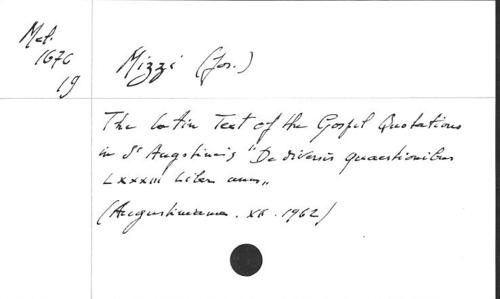 Mel.
1676
19
Mizzi (Jos.)
The Latin Text of the Gospel Quotations
in St Augstine's "De diversis quaestionibus
LXXXIII liber unus"
(Augustiniana. XII. 1962)